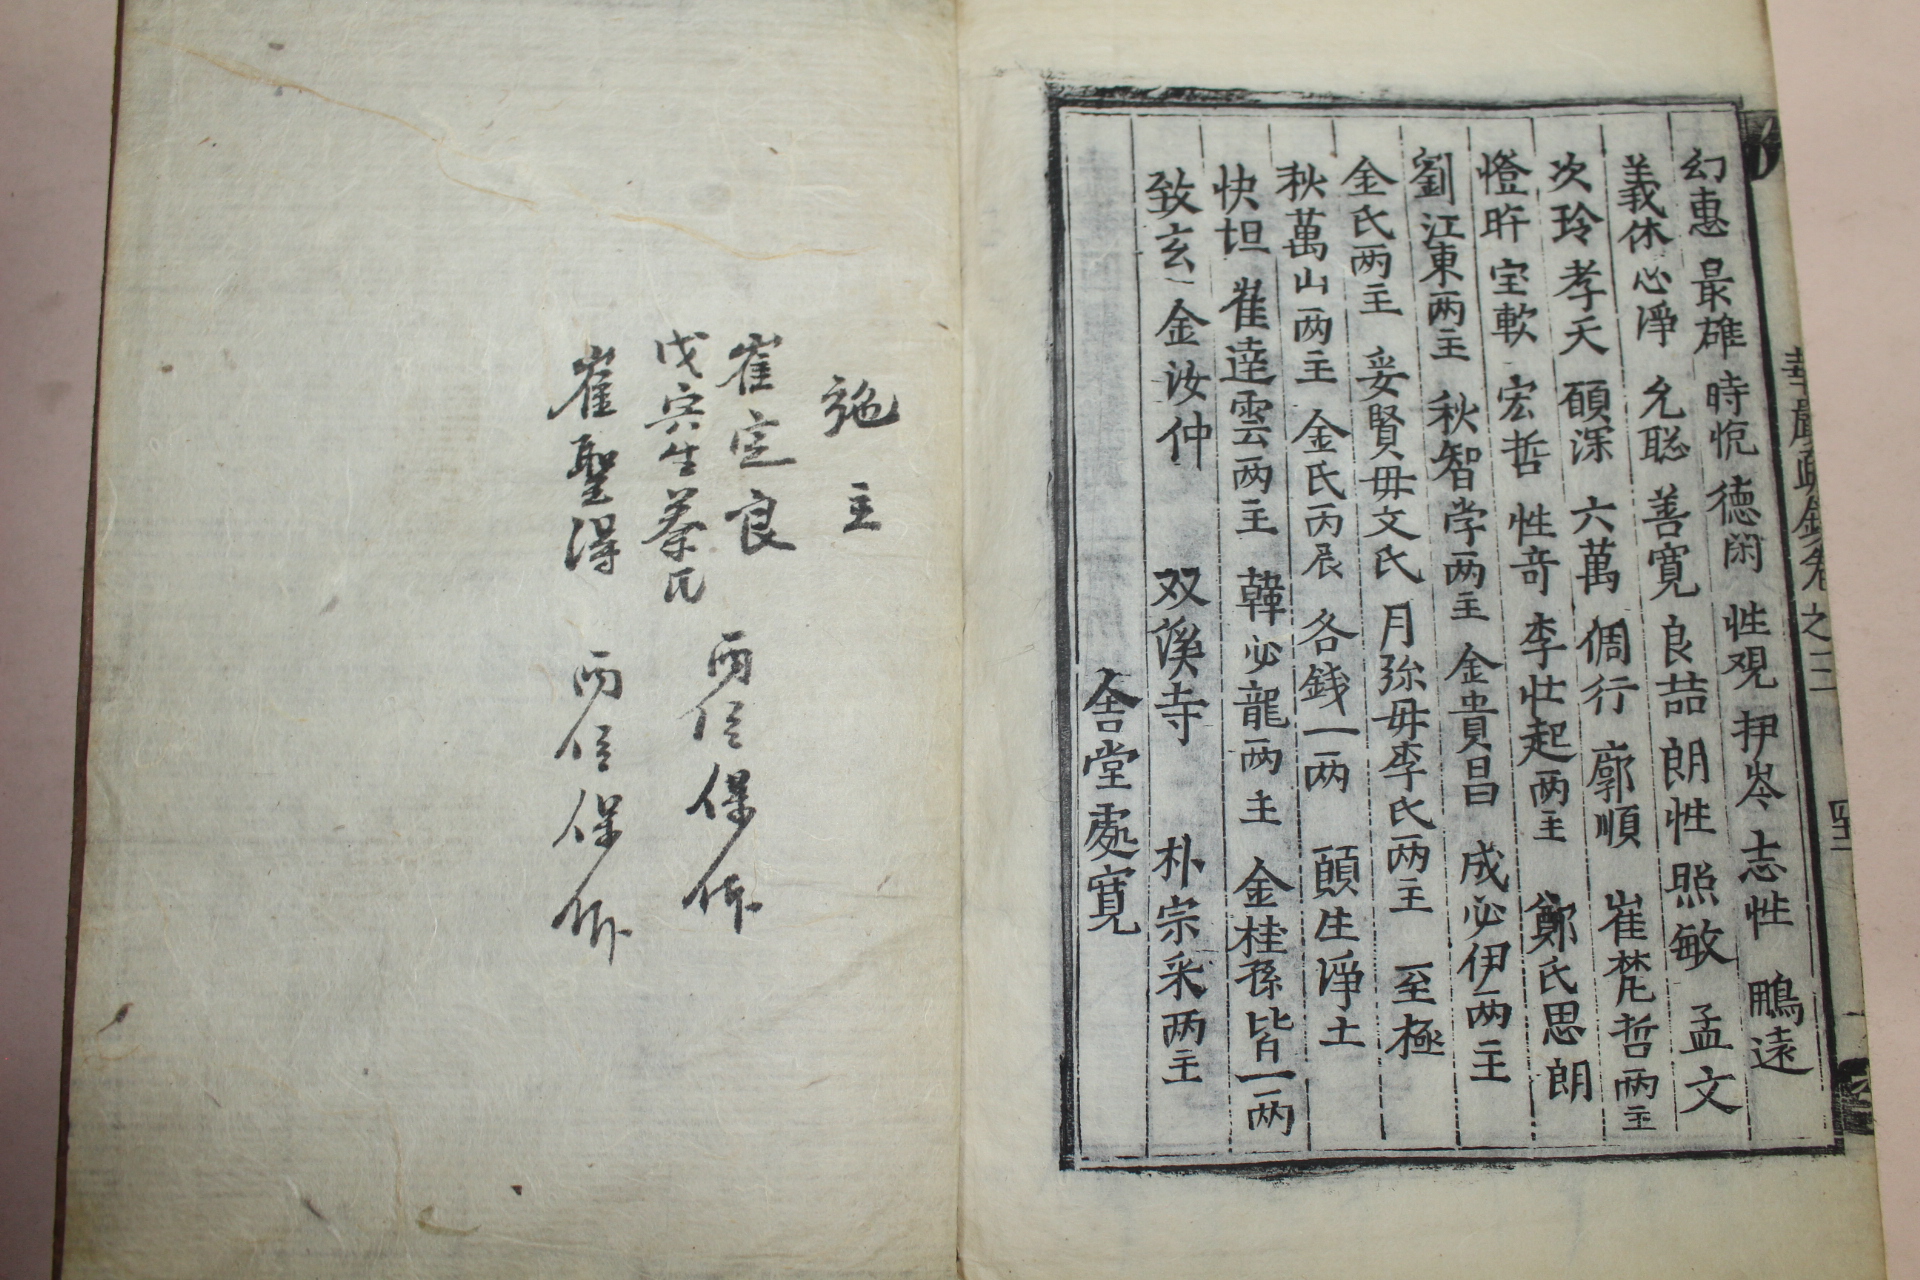 華嚴疏鈔卷之二
幻惠 最雄 時悅 德閑 性观 押岑 志性 鵬遠
義休 心淨 允聡 善寬 良喆 朗性 照敏 孟文
次玲 孝天 碩深 六萬 倜行 廓順 崔梵哲两主
燈旿 宝軟 宏哲 性奇 李壮起两主 鄭氏思朗
劉江東两主 秋智学两主 金貴昌 成必伊两主
金氏两主 妥賢毋文氏 月弥毋李氏两主 至極
秋萬山两主 金氏丙辰 各銭一两 頭生淨土
快坦 崔逵雲两主 韓必龍两主 金桂孫皆一两
致玄 金汝仲 双溪寺 朴宗采两主
舍堂處寬
施主
崔定良 两位保体
戊寅生蔡氏
崔聖得 两位保体